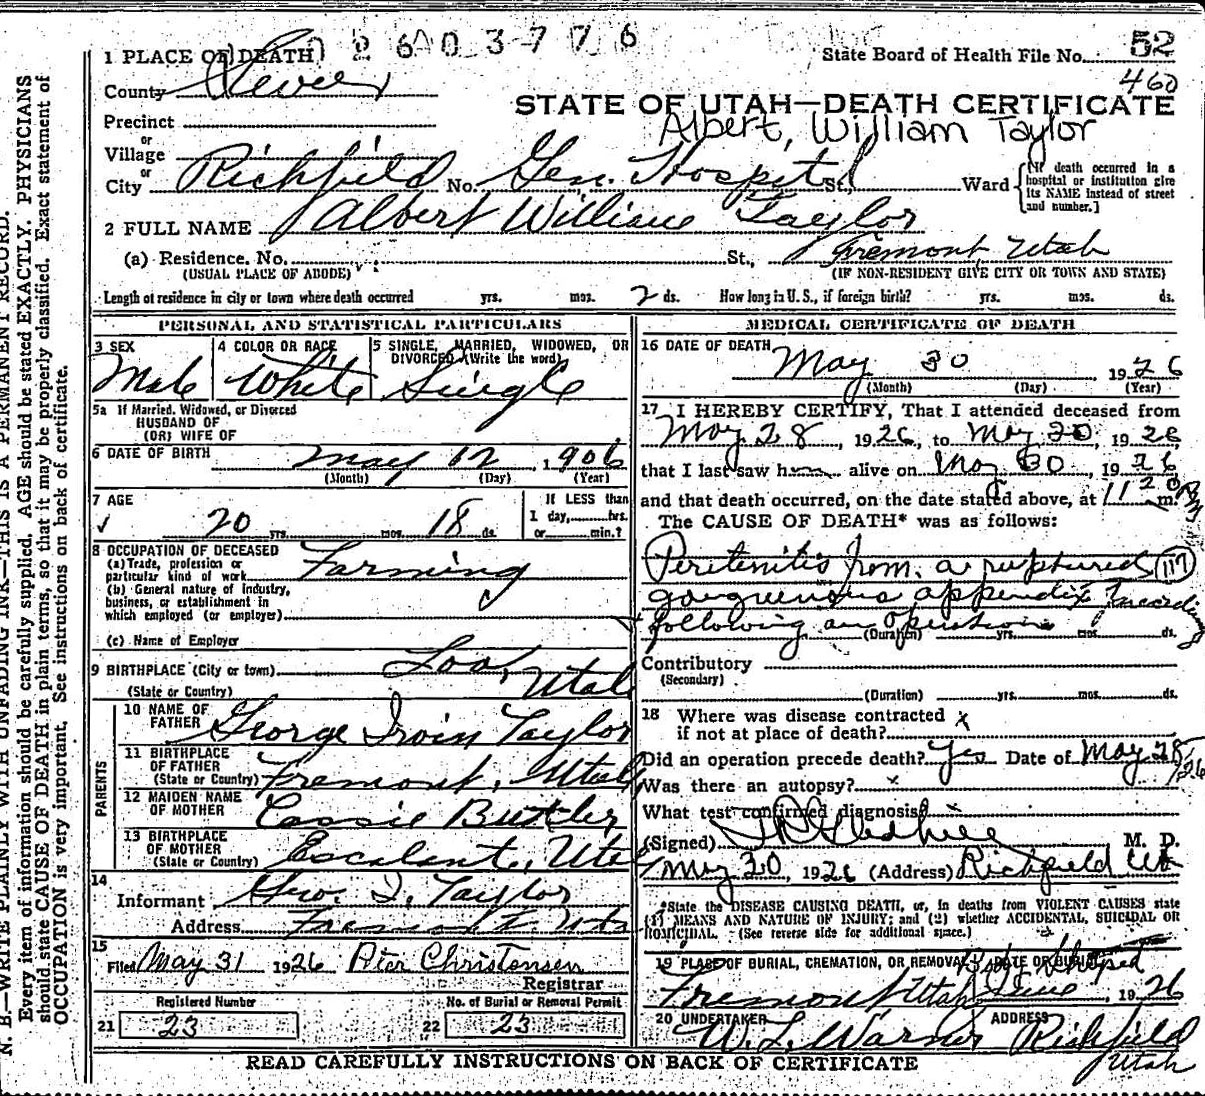 26 0 3 7 7 6
1 PLACE OF DEATH
State Board of Health File No. 52
460
County Sevier
STATE OF UTAH—DEATH CERTIFICATE
Albert, William Taylor
Precinct
or
Village
or
City Richfield No. Gen. Hospital St., Ward [If death occurred in a hospital or institution give its NAME instead of street and number.]
2 FULL NAME Albert William Taylor
(a) Residence. No. St., Fremont Utah
(USUAL PLACE OF ABODE) (IF NON-RESIDENT GIVE CITY OR TOWN AND STATE)
Length of residence in city or town where death occurred yrs. mos. 2 ds. How long in U. S., if foreign birth? yrs. mos. ds.
PERSONAL AND STATISTICAL PARTICULARS
3 SEX
Male
4 COLOR OR RACE
White
5 SINGLE, MARRIED, WIDOWED, OR
DIVORCED (Write the word)
Single
5a If Married, Widowed, or Divorced
HUSBAND OF
(OR) WIFE OF
6 DATE OF BIRTH May 12, 1906
(Month) (Day) (Year)
7 AGE
20 yrs. mos. 18 ds.
If LESS than
1 day, hrs.
or min.?
8 OCCUPATION OF DECEASED
(a) Trade, profession or
particular kind of work Farming
(b) General nature of industry,
business, or establishment in
which employed (or employer)
(c) Name of Employer
9 BIRTHPLACE (City or town) Loa,
(State or Country) Utah
PARENTS
10 NAME OF
FATHER George Irvin Taylor
11 BIRTHPLACE
OF FATHER
(State or Country) Fremont, Utah
12 MAIDEN NAME
OF MOTHER Cassie Butler
13 BIRTHPLACE
OF MOTHER
(State or Country) Escalant, Utah
14
Informant Geo. I. Taylor
Address Fremont, Uta
15
Filed May 31 1926 Peter Christensen
Registrar
Registered Number
21 23
No. of Burial or Removal Permit
22 23
MEDICAL CERTIFICATE OF DEATH
16 DATE OF DEATH
May 30 1926
(Month) (Day) (Year)
17 I HEREBY CERTIFY, That I attended deceased from
May 28, 1926, to May 30, 1926
that I last saw h alive on May 30, 1926
and that death occurred, on the date stated above, at 11 20 m.
The CAUSE OF DEATH* was as follows:
Peritenitis from a ruptured 117
gangreenous appendix
following an operation
(Duration) yrs. mos. ds.
Contributory
(Secondary)
(Duration) yrs. mos. ds.
18 Where was disease contracted x
if not at place of death?
Did an operation precede death? Yes Date of May 28/26
Was there an autopsy? x
What test confirmed diagnosis? x
(Signed) M. D.
May 30, 1926 (Address) Richfield Ut
*State the DISEASE CAUSING DEATH, or, in deaths from VIOLENT CAUSES state
(1) MEANS AND NATURE OF INJURY; and (2) whether ACCIDENTAL, SUICIDAL OR
HOMICIDAL. (See reverse side for additional space.)
19 PLACE OF BURIAL, CREMATION, OR REMOVAL DATE OF BURIAL
Body Shipped
Fremont Utah June, 1926
20 UNDERTAKER ADDRESS
W. L. Warner Richfield
Utah
READ CAREFULLY INSTRUCTIONS ON BACK OF CERTIFICATE
N. B.—WRITE PLAINLY WITH UNFADING INK—THIS IS A PERMANENT RECORD.
Every item of information should be carefully supplied. AGE should be stated EXACTLY. PHYSICIANS
should state CAUSE OF DEATH in plain terms, so that it may be properly classified. Exact statement of
OCCUPATION is very important. See instructions on back of certificate.